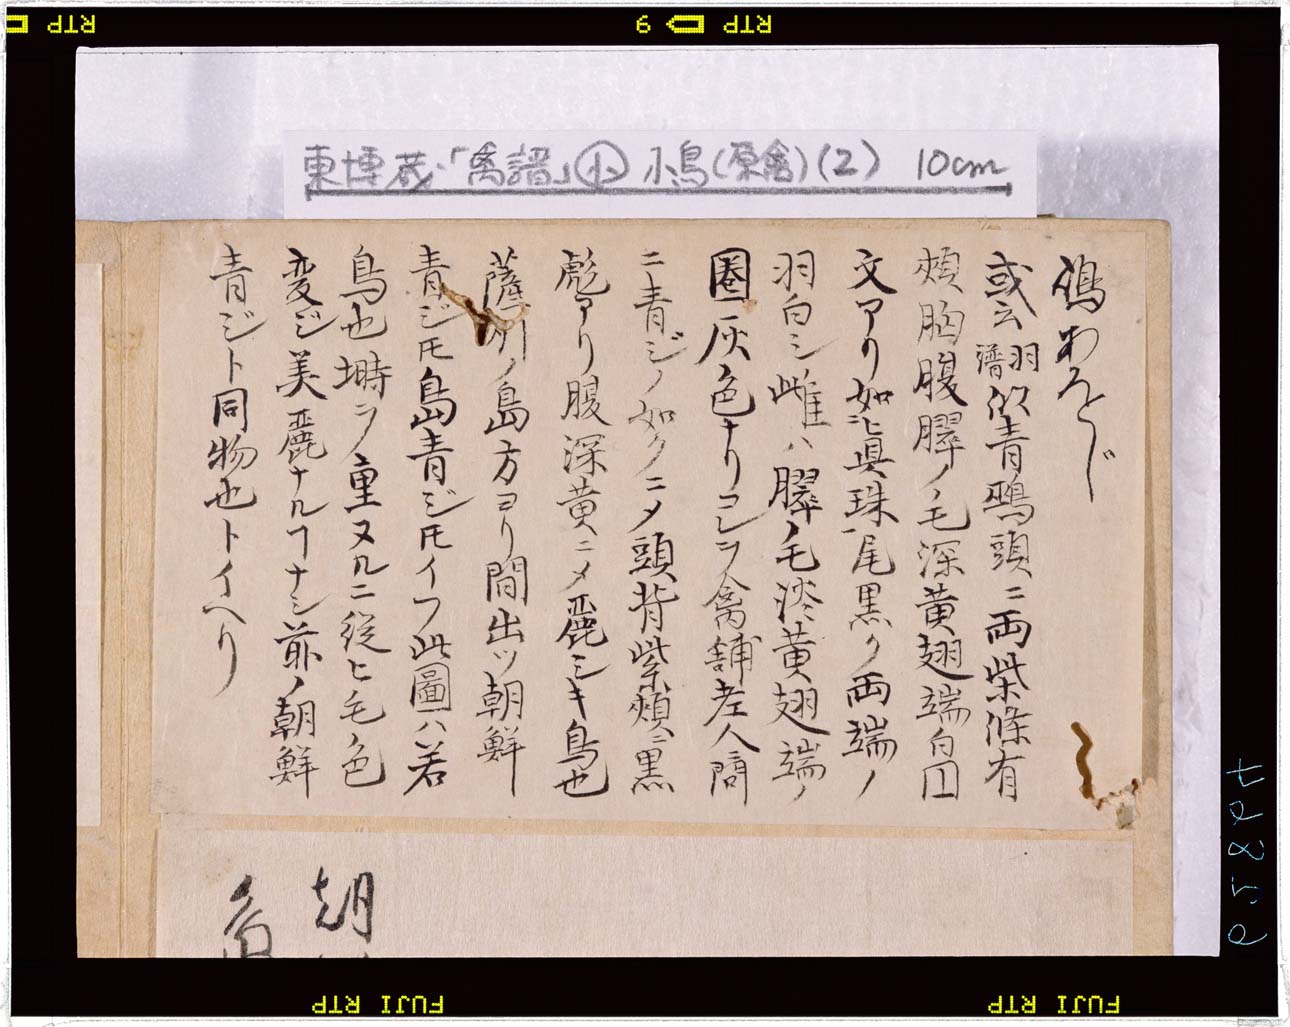 RTP
9
RTP
東博蔵・「禽譜」小 小鳥(原禽)(2) 10cm
鵐あをじ
或云 羽譜 似青鵐頭ニ両柴條有
頬胸腹臎ノ毛深黄翅端白囙
文アリ如眞珠尾黒ク両端ノ
羽白シ雌ハ臎ノ毛淡黄翅端ノ
圏灰色ナリコレヲ禽舗老人問
ニ青ジノ如クニメ頭背紫頬ニ黒
彪アリ腹深黄ニメ麗ミキ鳥也
薩州ノ島方ヨリ間出ツ朝鮮
青ジ𪜈島青ジ𪜈イフ此圖ハ若
鳥也塒ヲ重ヌルニ従ヒ毛色
変ジ美麗ナルヿナシ前ノ朝鮮
青ジト同物也トイヘリ
朝
FUJI RTP
FUJI RTP